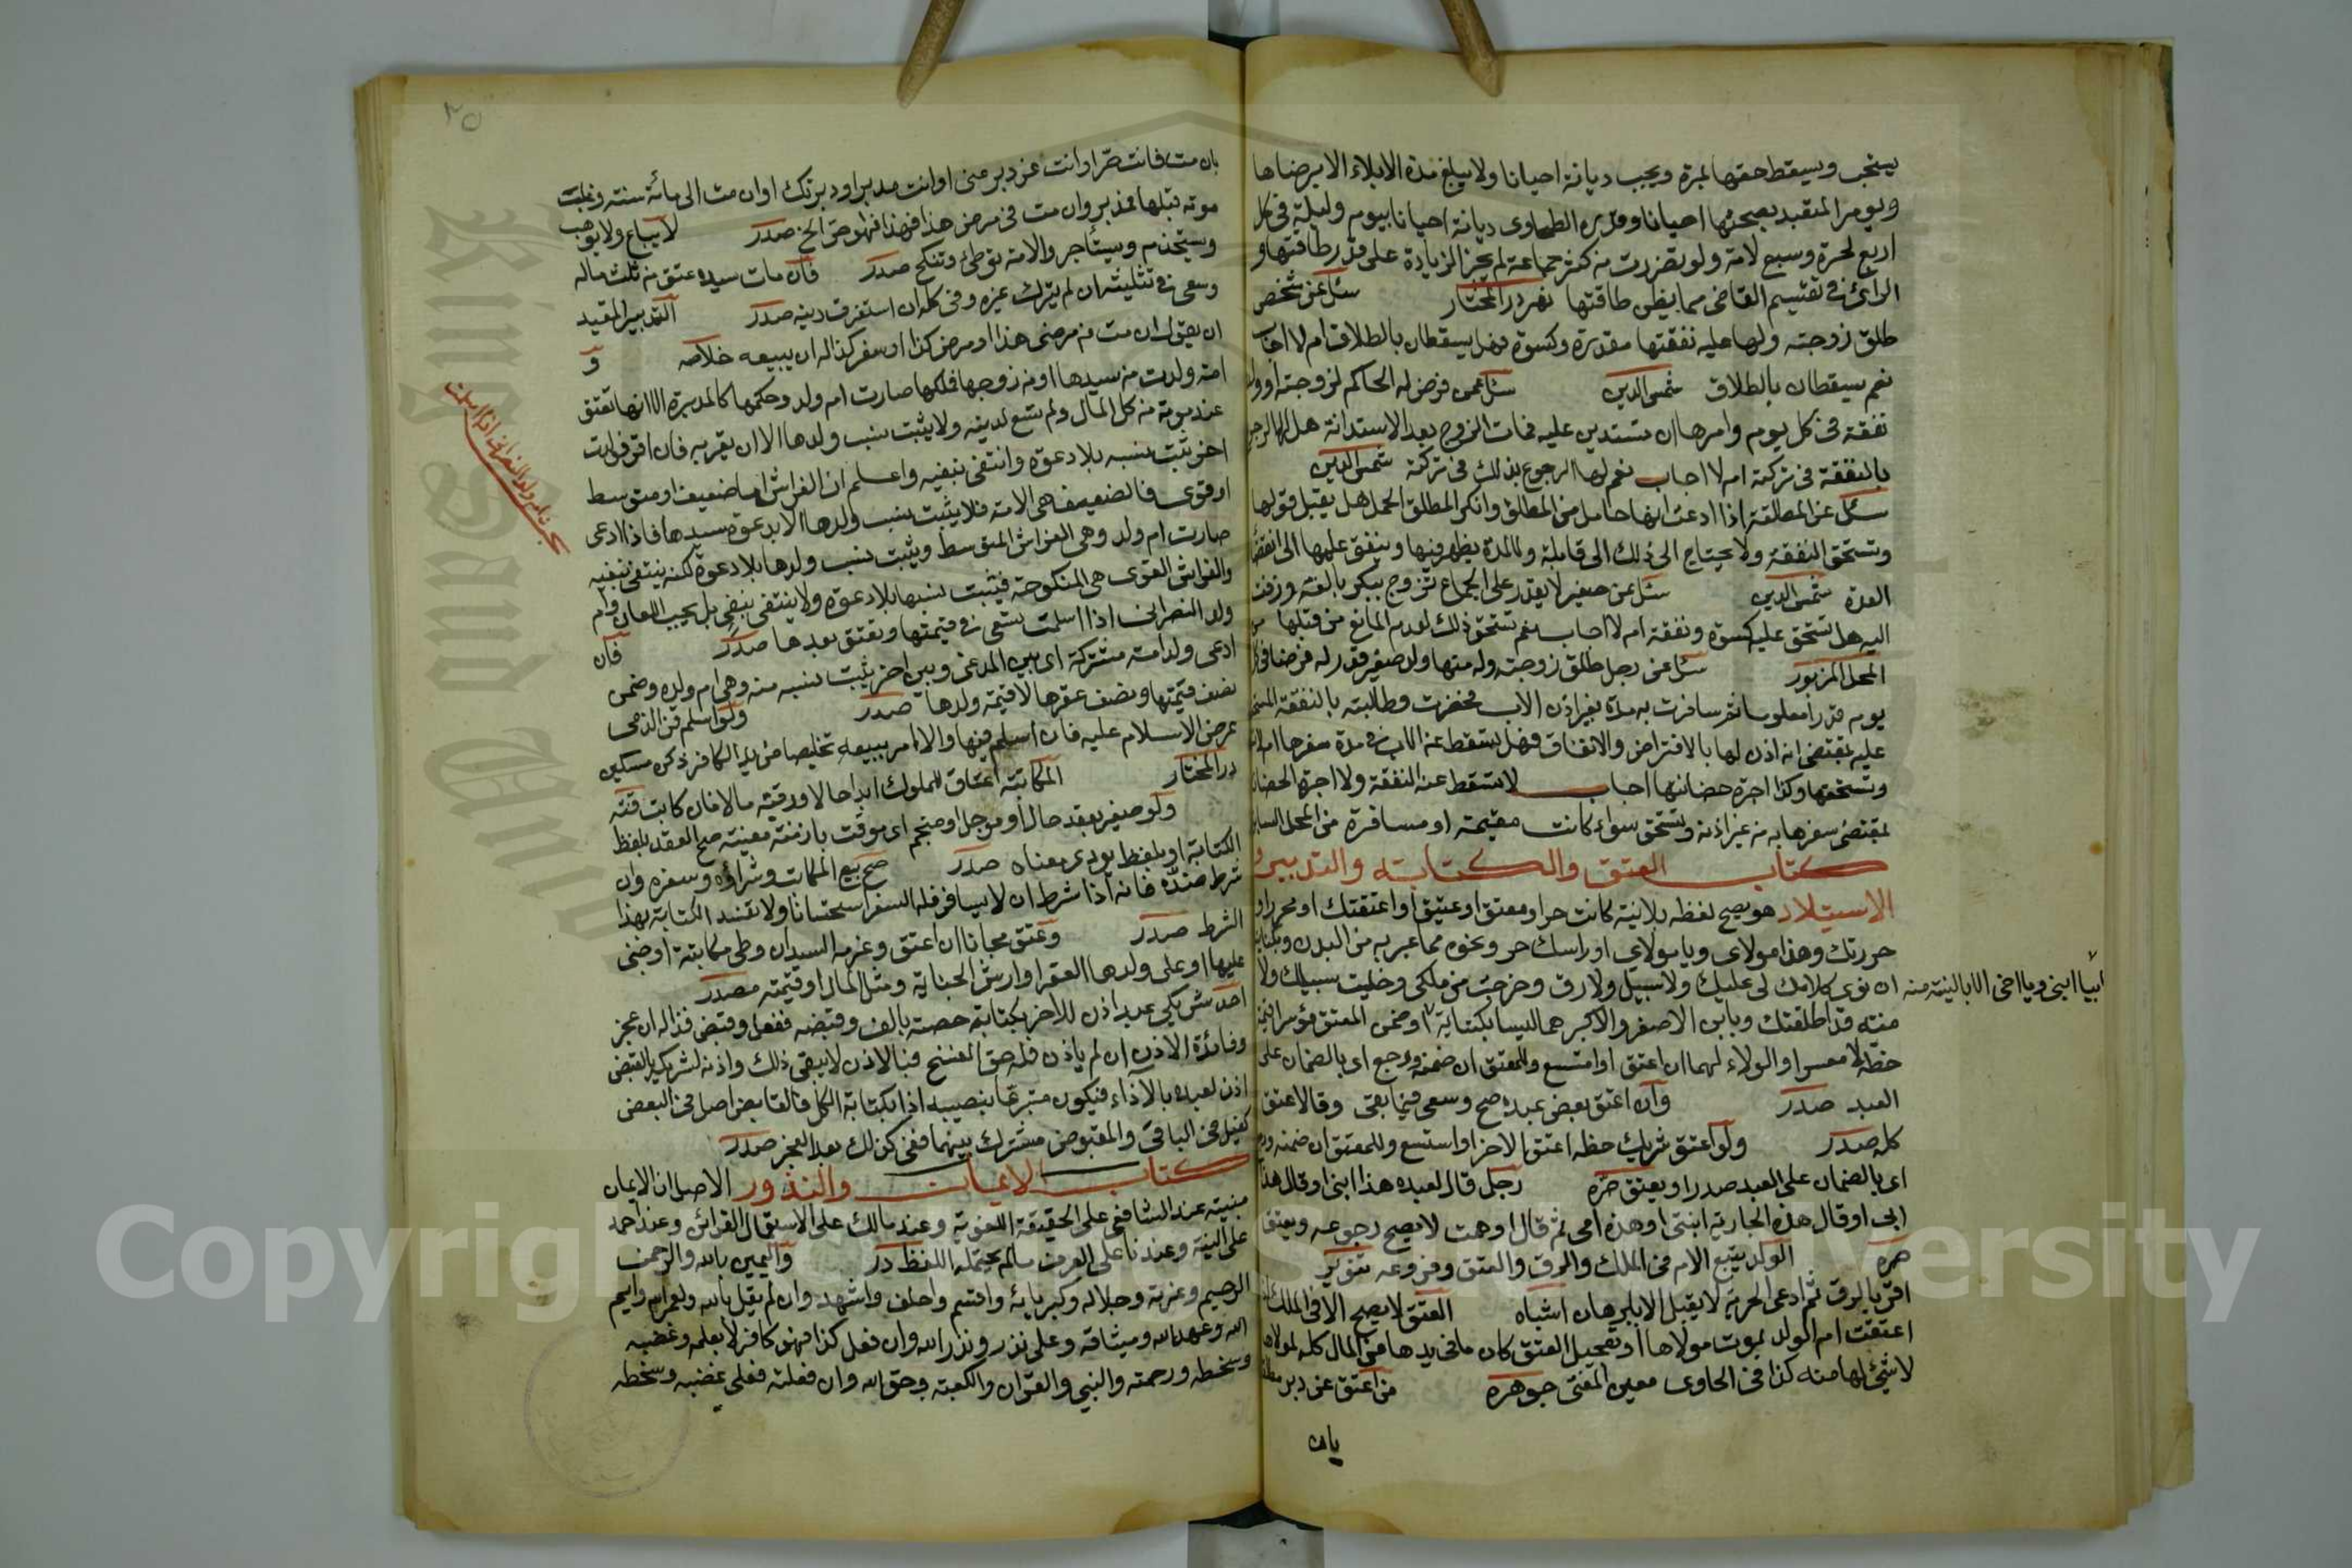 يستحب ويسقط حقها بمرة ويجب ديانة احيانا ولا يبلغ مدة الايلاء الا برضاها
ويومر المتعبد بصحبتها احيانا وقدره الطحاوى ديانة احيانا بيوم وليلة فى كل
اربع لحرة وسبع لامة ولو تضررت من كثرة جماعه لم يجز الزيادة على قدر طاقتها و
الراى فى تقسيم القاضى مما يظن طاقتها نهر در المختار سئل عن شخص
طلق زوجته ولها عليه نفقتها مقدرة وكسوة فهل يسقطان بالطلاق ام لا اجاب
نعم يسقطان بالطلاق شمس الدين سئل عمن فرض له الحاكم لزوجته او ولده
نفقة فى كل يوم وامرها ان تستدين عليه فمات الزوج بعد الاستدانة هل لها الرجوع
بالنفقة فى تركته ام لا اجاب نعم لها الرجوع بذلك فى تركته شمس الدين
سئل عن المطلقة اذا ادعت انها حامل من المطلق وانكر المطلق الحمل هل يقبل قولها
وتستحق النفقة ولا يحتاج الى ذلك الى قابلة ولا لمدة يظهر فيها وينفق عليها الى انقضا
العدة شمس الدين سئل عن صغير لا يقدر على الجماع تزوج ببكر بالغة وزفت
اليه هل تستحق عليه كسوة ونفقة ام لا اجاب نعم تستحق ذلك لعدم المانع من قبلها من
المحل المزبور سئل عن رجل طلق زوجته وله منها ولد صغير قدر له فرضا فى كل
يوم قدرا معلوما ثم سافرت به مدة بغير اذن الاب فحضرت وطالبته بالنفقة
عليه بمقتضى انه اذن لها بالاقتراض والانفاق فهل تسقط عن الاب فى مدة سفرها ام لا
وتستحقها وكذا اجرة حضانتها اجاب لا تسقط عنه النفقة ولا اجرة الحضانة
بمقتضى سفرها به من غير اذنه وتستحق سواء كانت مقيمة او مسافرة من المحل السابق
كتاب العتق والكتابة والتدبير و
الاستيلاد هو يصح لفظه بلا نية كانت حر او معتق او عتيق او اعتقتك او محرر او
حررتك وهذا مولاى ويا مولاي او راسك حر ونحوه مما عبر به من البدن وبكناية
ان نوى كلامك لى عليك ولا سبيل ولا رق وخرجت من ملكى وخليت سبيلك ولا
منته قد اطلقتك وبابن الاصغر والاكبر هما ليسا بكناية او ضمن المعتق موسرا قيمة
حظه لا معسرا والولاء لهما ان اعتق او استسع وللمعتق ان ضمنه ورجع اى بالضمان على
العبد صدر وان اعتق بعض عبده صح وسعى فيما بقى وقالا عتق
كله صدر ولو اعتق شريك حظه اعتق الاخر او استسع وللمعتق ان ضمنه ورجع
اى بالضمان على العبد صدر او يعتق حره رجل قال لعبده هذا ابنى او قال هذا
ابى او قال هذه الجارية ابنتى او هذه امى ثم قال اوهمت لا يصح رجوعه ويعتق
حره الولد يتبع الام فى الملك والرق والعتق وفروعه تنوير
اقر بالرق ثم ادعى الحرية لا يقبل الا ببرهان اشباه العتق لا يصح الا فى الملك
اعتقت ام الولد بموت مولاها او تعجيل العتق كان ما فى يدها من المال كله لمولاها
لا شئ لها منه كذا فى الحاوى معين المفتى جوهره من اعتق عن دبر مطلقا
بان
ابنا ابنى ويا اخى الا بالنية منه
٢٥
بان مت فانت حر او انت عن دبر منى او انت مدبر او دبرتك او ان مت الى مائة سنة وغلبت
موته قبلها فمدبر وان مت فى مرضى هذا فهذا فهو حر الخ صدر لا يباع ولا يوهب
ويستخدم ويستأجر والامة توطئ وتنكح صدر فان مات سيده عتق من ثلث ماله
وسعى فى ثلثيه ان لم يترك غيره وفى كله ان استغرق دينه صدر التدبير المقيد
ان يقول ان مت من مرضى هذا او مرض كذا او سفر كذا له ان يبيعه خلاصه و
امة ولدت من سيدها او من زوجها فملكها صارت ام ولد وحكمها كالمدبرة الا انها تعتق
عند موته من كل المال ولم تسع لدينه ولا يثبت نسب ولدها الا ان يقر به فان اقر فولدت
اخر ثبت نسبه بلا دعوة وانتفى بنفيه واعلم ان الفراش اما ضعيف او متوسط
او قوى فالضعيف هى الامة فلا يثبت نسب ولدها الا بدعوة سيدها فاذا ادعى
صارت ام ولد وهى الفراش المتوسط ويثبت نسب ولدها بلا دعوة لكنه ينتفى بنفيه
والفراش القوى هى المنكوحة فيثبت نسبها بلا دعوة ولا ينتفى بنفى بل يجب اللعان وام
ولد النصرانى اذا اسلمت تسعى فى قيمتها وتعتق بعدها صدر فان
ادعى ولد امة مشتركة اى بين المدعى وبين اخر يثبت نسبه منه وهى ام ولده وضمن
نصف قيمتها ونصف عقرها لا قيمة ولدها صدر ولو اسلم قن الذمى
عرض الاسلام عليه فان اسلم فبها والا امر ببيعه تخليصا من يد الكافر ذكره مسكين
در المختار المكاتبة اعتاق المملوك ابدا حالا ورقبته مالا فان كاتب قنه
ولو صغير بعقد حال او موجل او منجم اى موقت بازمنة معينة صح العقد بلفظ
الكتابة او بلفظ يودى معناه صدر صح بيع المكاتب وشراؤه وسفره وان
شرط ضده فانه اذا شرط ان لا يسافر فله السفر استحسانا ولا تفسد الكتابة بهذا
الشرط صدر وعتق مجانا ان اعتق وغرم السيد ان وطى مكاتبته او جنى
عليها او على ولدها العقر او ارش الجناية ومثل المال او قيمته صدر
احد شريكى عبد اذن للاخر بكتابة حصته بالف وقبضه ففعل وقبض فذا له ان عجز
وفائدة الاذن ان لم ياذن فله حق الفسخ فبالاذن لا يبقى ذلك واذنه لشريكه بالقبض
اذن لعبده بالآداء فيكون متبرعا بنصيبه اذا بكتابة الكل فالقابض اصل فى البعض
كفيل فى الباقى والمقبوض مشترك بينهما ففى كذلك بعد العجز صدر
كتاب الايمان والنذور الاصل ان الايمان
مبنية عند الشافعى على الحقيقة اللغوية وعند مالك على الاستعمال القرانى وعند احمد
على النية وعندنا على العرف ما لم يحتمله اللفظ در واليمين بالله والرحمن
الرحيم وعزته وجلاله وكبريائه واقسم واحلف واشهد وان لم يقل بالله ولعمر الله وايم
الله وعهد الله وميثاقه وعلى نذر ونذر الله وان فعل كذا فهو كافر لا بعلمه وغضبه
وسخطه ورحمته والنبي والقران والكعبة وحق الله وان فعلته فعلى غضبه وسخطه
ام ولد النصرانى اذا اسلمت
Copyright © King Saud University
King Saud University